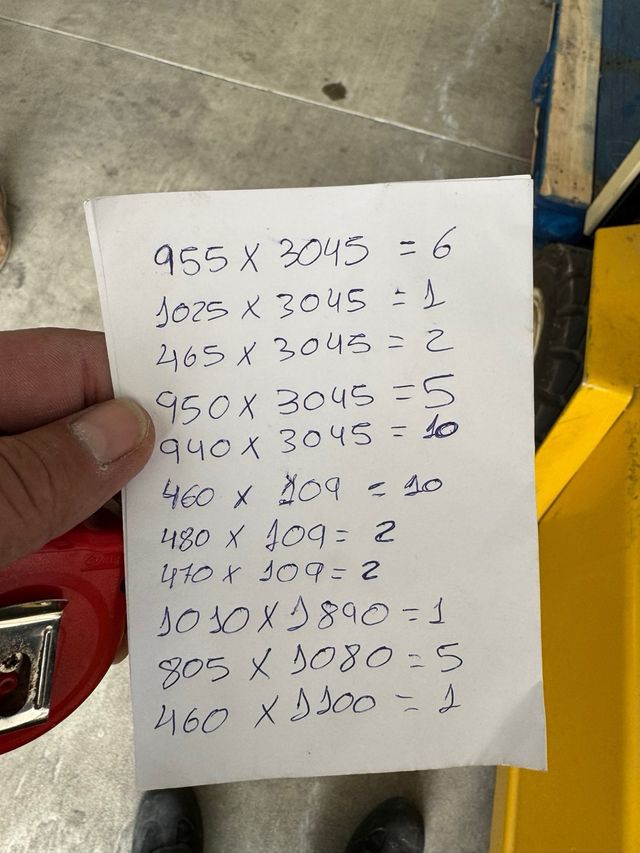 955 X 3045 = 6
1025 X 3045 = 1
465 X 3045 = 2
950 X 3045 = 5
940 X 3045 = 10
460 X 109 = 10
480 X 109 = 2
470 X 109 = 2
1010 X 1890 = 1
805 X 1080 = 5
460 X 1100 = 1